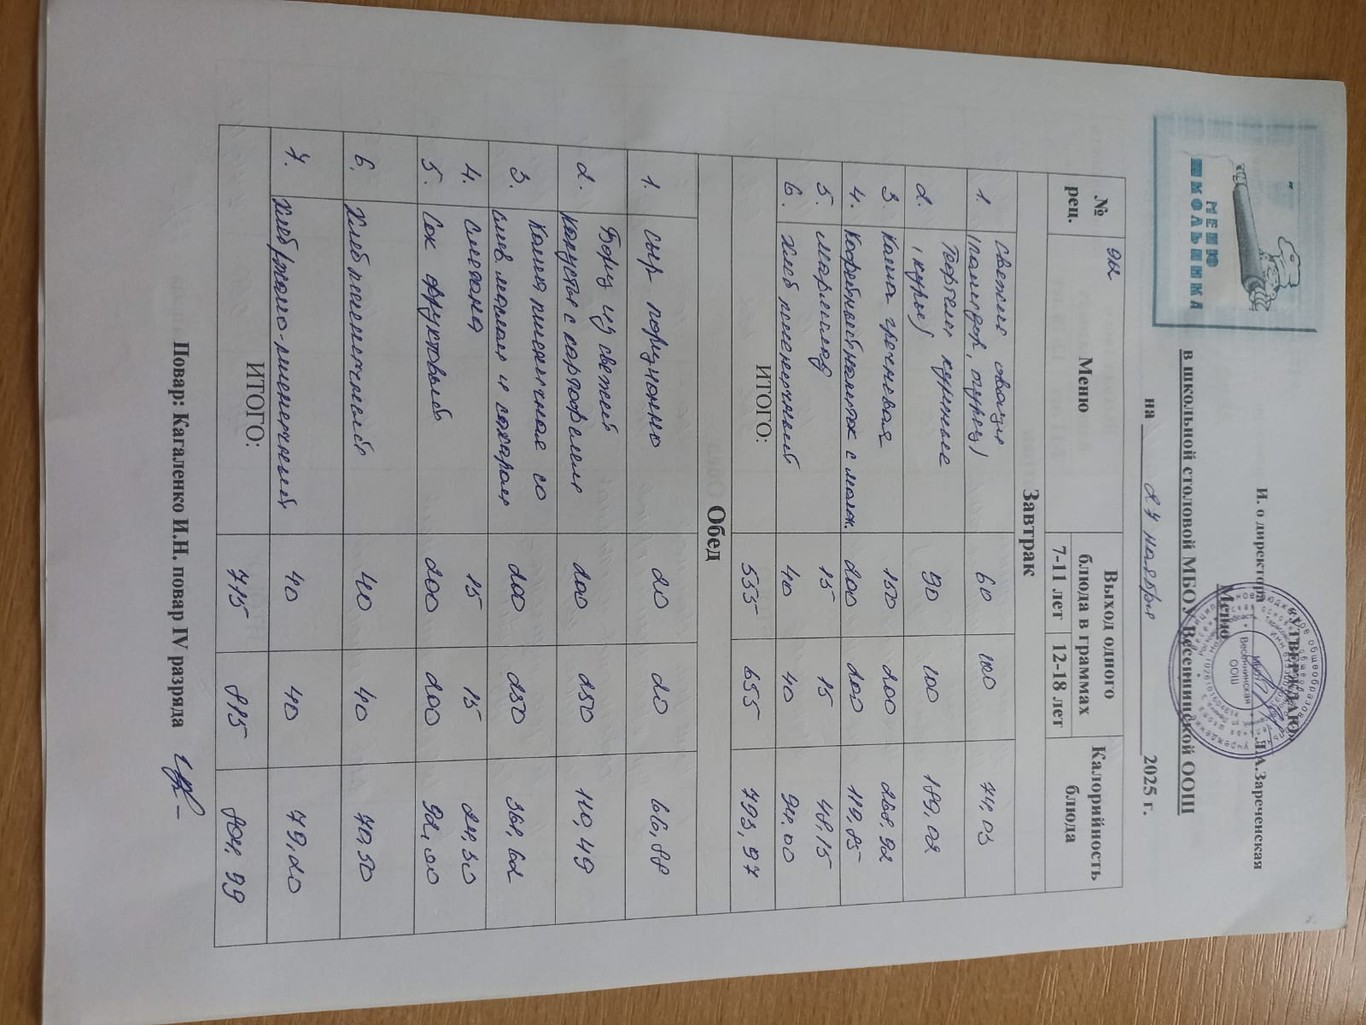 МЕНЮ
ШКОЛЬНИКА
УТВЕРЖДАЮ:
И. о директора Л.А.Зареченская
Меню
в школьной столовой МБОУ Весенинской ООШ
на 24 ноября 2025 г.
№ рец. Меню Выход одного блюда в граммах Калорийность блюда
7-11 лет 12-18 лет
Завтрак
1. свежие овощи
(помидор, огурец) 60 100
2. Тефтели куриные
(куры) 90 100 189,02
3. Каша гречневая 150 200 268,92
4. Кофейный напиток с молок. 200 200 119,85
5. мармелад 15 15 48,15
6. хлеб пшеничный 40 40 94,00
ИТОГО: 555 655 793,97
Обед
1. сыр порционно 20 20 66,88
2. Борщ из свежей
капусты с картофелем 200 250 110,49
3. Каша пшеничная со
слив. маслом и сахаром 200 250
4. Сметана 15 15 24,30
5. Сок фруктовый 200 200
6. Хлеб пшеничный 40 40 70,50
7. Хлеб ржано-пшеничный 40 40 79,20
ИТОГО: 715 815
Повар: Кагаленко И.Н. повар IV разряда